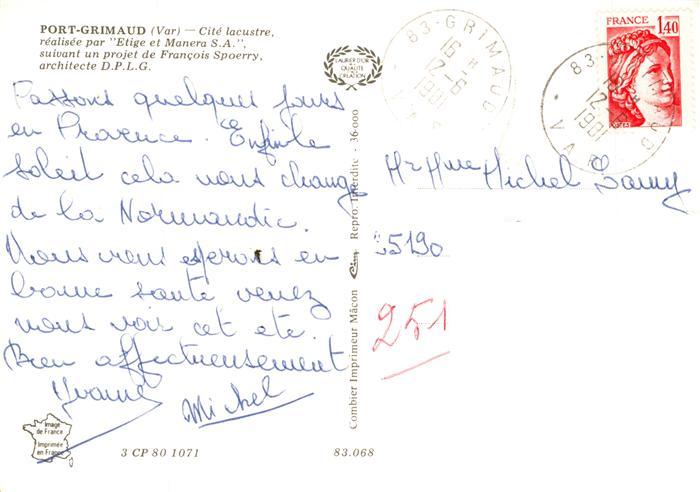 PORT-GRIMAUD (Var) — Cité lacustre,
réalisée par "Etige et Manera S.A.",
suivant un projet de François Spoerry,
architecte D.P.L.G.
LAURIER D'OR
QUALITÉ
CRÉATION
83-GRIMAUD
16 H
12-6
1981
VAR
FRANCE
1,40
POSTES
83-GRIMAUD
16 H
12-6
1981
VAR
Passons quelques jours
en Provence. Enfin le
soleil cela nous change
de la Normandie.
Nous vous esperons en
bonne santé venez
nous voir cet eté.
Bien affectueusement
Yvonne
Michel
Mr Mme Michel
5190
251
Combier Imprimeur Mâcon
Cim
Repro. Interdite - 36-000
Image
de France
Imprimée
en France
3 CP 80 1071
83.068